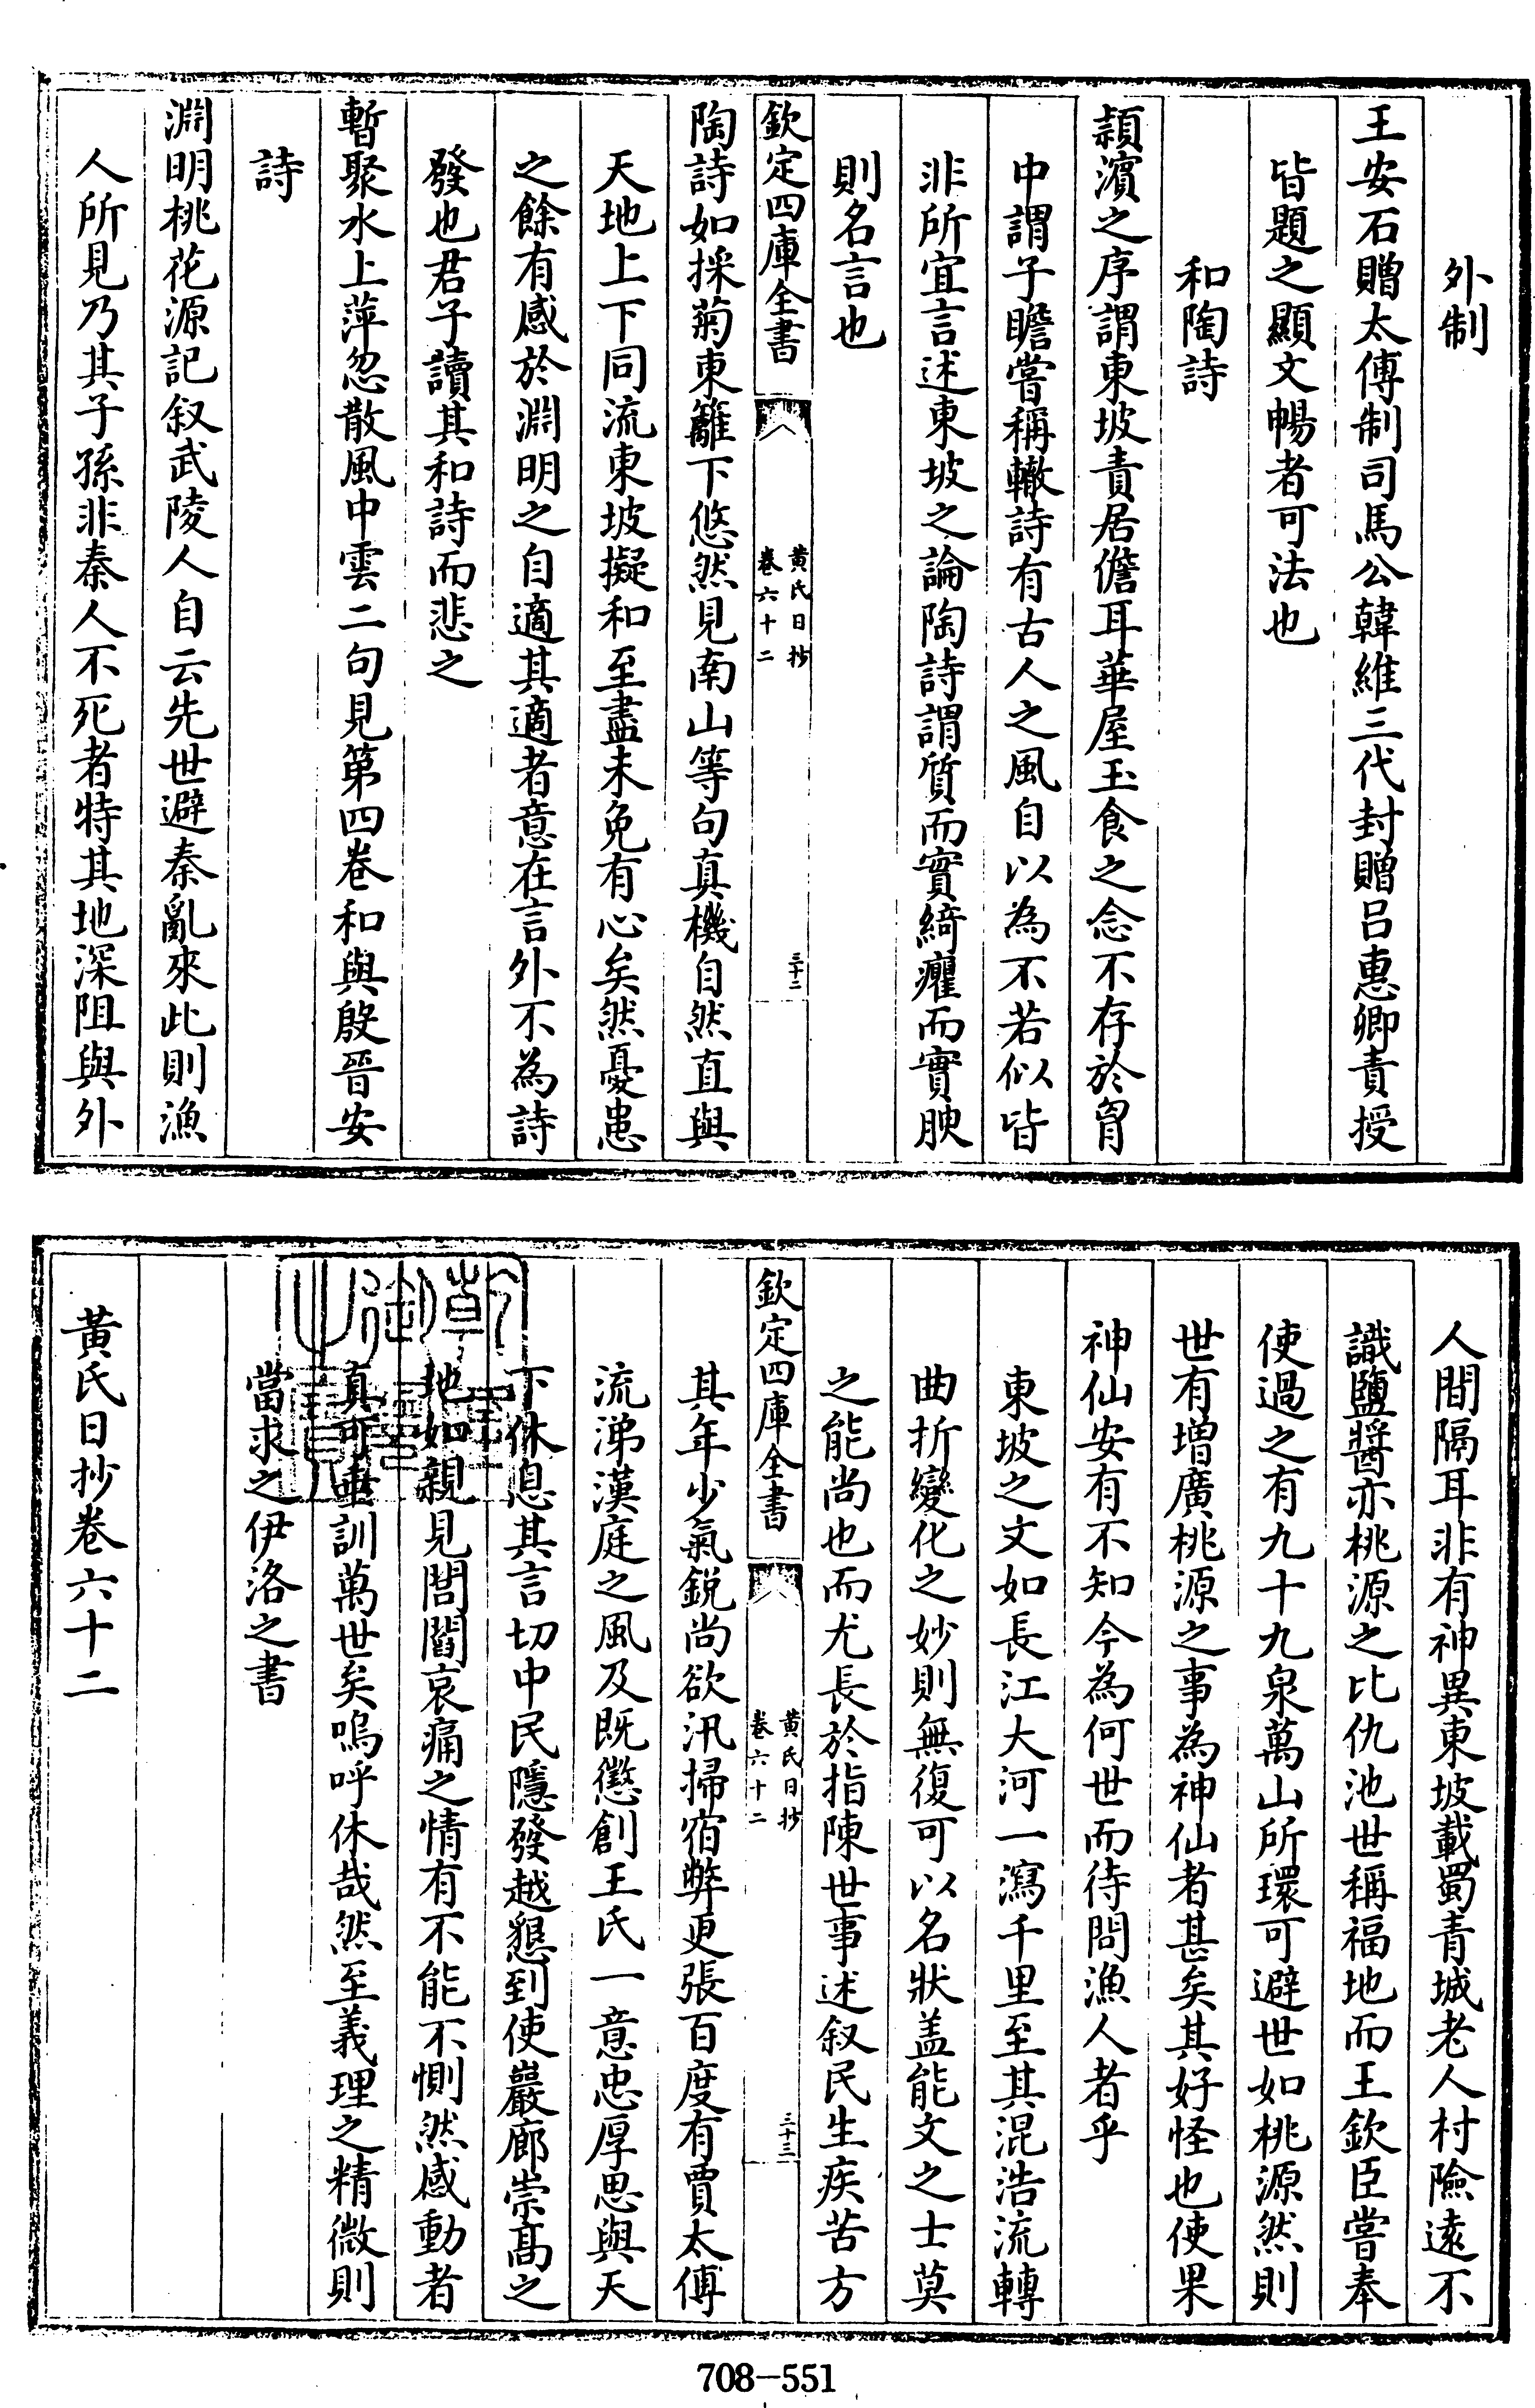 外制
王安石贈太傅制司馬公韓維三代封贈吕惠卿責授
皆題之顯文暢者可法也
和陶詩
頴濱之序謂東坡責居儋耳華屋玉食之念不存於胷
中謂子瞻嘗稱轍詩有古人之風自以為不若似皆
非所宜言述東坡之論陶詩謂質而實綺癯而實腴
則名言也
欽定四庫全書
黄氏日抄
卷六十二
三十二
陶詩如採菊東籬下悠然見南山等句真機自然直與
天地上下同流東坡擬和至盡未免有心矣然憂患
之餘有感於淵明之自適其適者意在言外不為詩
發也君子讀其和詩而悲之
暫聚水上萍忽散風中雲二句見第四卷和與殷晉安
詩
淵明桃花源記叙武陵人自云先世避秦亂來此則漁
人所見乃其子孫非秦人不死者特其地深阻與外
人間隔耳非有神異東坡載蜀青城老人村險遠不
識鹽醬亦桃源之比仇池世稱福地而王欽臣嘗奉
使過之有九十九泉萬山所環可避世如桃源然則
世有増廣桃源之事為神仙者甚矣其好怪也使果
神仙安有不知今為何世而待問漁人者乎
東坡之文如長江大河一瀉千里至其混浩流轉
曲折變化之妙則無復可以名狀盖能文之士莫
之能尚也而尤長於指陳世事述叙民生疾苦方
欽定四庫全書
黄氏日抄
卷六十二
三十三
其年少氣鋭尚欲汛掃宿弊更張百度有賈太傅
流涕漢庭之風及既懲創王氏一意忠厚思與天
下休息其言切中民隱發越懇到使巖廊崇髙之
地如親見閭閻哀痛之情有不能不惻然感動者
真可垂訓萬世矣嗚呼休哉然至義理之精微則
當求之伊洛之書
黃氏日抄卷六十二
708-551